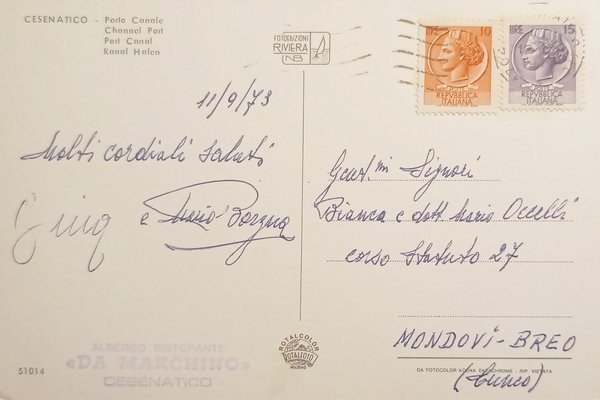 CESENATICO - Porto Canale
Channel Port
Port Canal
Kanal Hafen
FOTOEDIZIONI
RIVIERA
NB
LIRE 10
REPVBBLICA
ITALIANA
LIRE 15
REPVBBLICA
ITALIANA
11/9/73
Molti cordiali saluti
e Mario Borgna
Gent.mi Signori
Bianca e dott. Mario Occelli
corso Statuto 27
MONDOVÍ-BREO
(Cuneo)
ALBERGO RISTORANTE
«DA MARCHINO»
CESENATICO
51014
ROTALCOLOR
ROTALFOTO
MILANO
DA FOTOCOLOR KODAK EKTACHROME - RIP. VIETATA